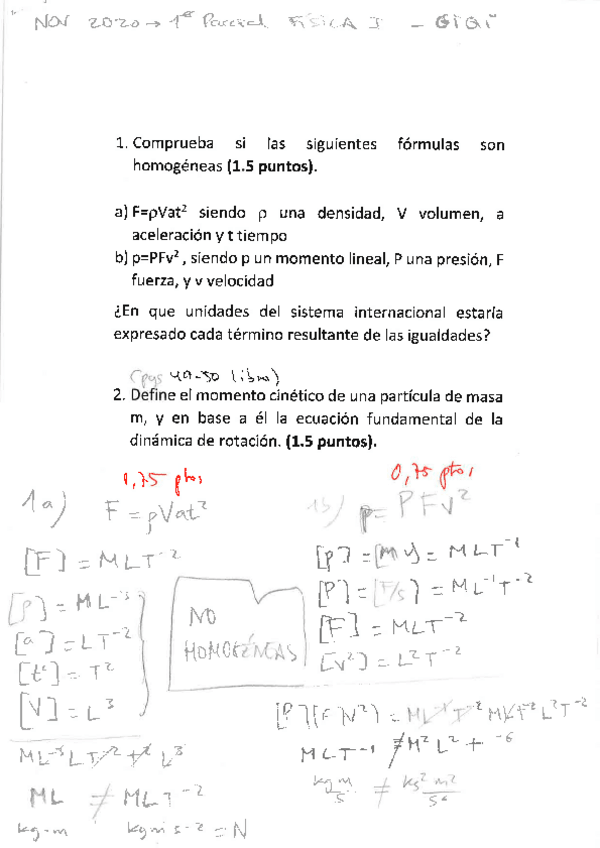 Nov 2020 → 1er Parcial FÍSICA I - GIQI
1. Comprueba si las siguientes fórmulas son
homogéneas (1.5 puntos).
a) F=ρVat² siendo ρ una densidad, V volumen, a
aceleración y t tiempo
b) p=PFv² , siendo p un momento lineal, P una presión, F
fuerza, y v velocidad
¿En que unidades del sistema internacional estaría
expresado cada término resultante de las igualdades?
(pgs 49-50 libro)
2. Define el momento cinético de una partícula de masa
m, y en base a él la ecuación fundamental de la
dinámica de rotación. (1.5 puntos).
0,75 ptos
1a) F = ρVat²
[F] = MLT⁻²
[ρ] = ML⁻³
[a] = LT⁻²
[t²] = T²
[V] = L³
ML⁻³LT⁻²T²L³
ML ≠ MLT⁻²
kg-m kgm s-2 = N
NO
HOMOGÉNEAS
0,75 ptos
1b) p= PFv²
[p] = [mv] = MLT⁻¹
[P] = [F/s] = ML⁻¹T⁻²
[F] = MLT⁻²
[v²] = L²T⁻²
[P][F][V²] = ML⁻¹T⁻²MLT⁻²L²T⁻²
MLT⁻¹ ≠ M²L²T⁻⁶
kg m/s ≠ kg² m²/s⁶